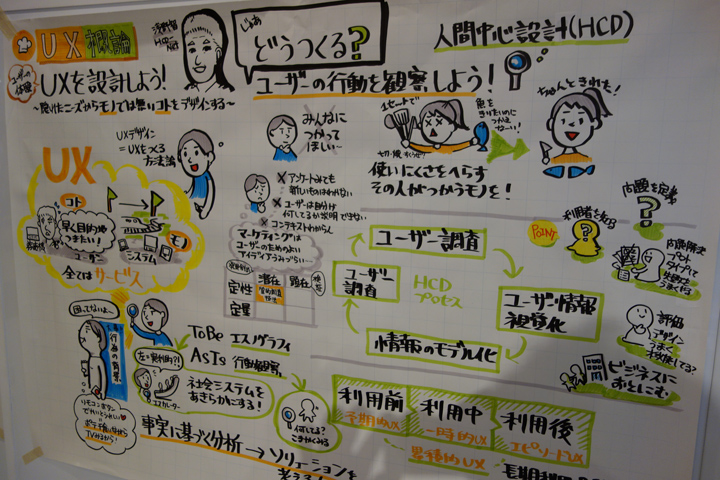 UX概論
ユーザーの
体験
UXを設計しよう!
モノでは無いコトをデザインする~
UXデザイン
=UXをつくる
方法論
UX
コト
早く目的地に
つきたい!
ユーザー
システム
モノ
全てはサービス
じゃあ
どうつくる?
ユーザーの行動を観察しよう!
みんなに
つかって
ほしい~
アンケートみても
新しいものはわからない
ユーザーは自分が
何してるか説明できない
コンテキストわからん
マーケティングは
ユーザーのための
アイディアうみづらい…
潜在
顕在
定性
定量
人間中心設計(HCD)
1セットで
魚を
ちゃんときれた!
使いにくさをへらす
その人がつかうモノを!
ユーザー調査
ユーザー
調査
HCD
プロセス
ユーザー情報
視覚化
情報のモデル化
Point
利用者を知る
問題を定義
問題解決
プロト
タイプで
評価
デザイン
うまく
ビジネスに
おとしこむ
困ってないよ~
行為の背景
リモコンボタン
TVみるから!
ToBe エスノグラフィ
AsIs 行動観察
左=実利的?!
エスカレーター
社会システムを
あきらかにする!
何してる?
こまかくみる
事実に基づく分析→ソリューションを
利用前
予期的UX
利用中
一時的UX
利用後
エピソードUX
累積的UX
長期